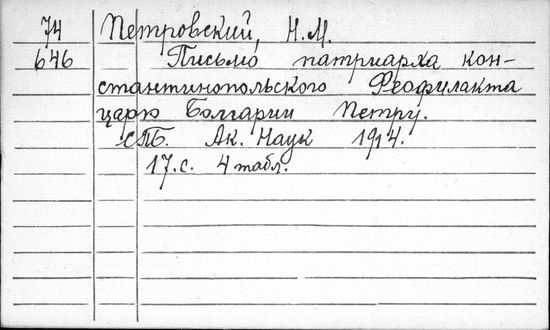 74 Петровский, Н.М.
646 Письмо патриарха кон-
стантинопольского Феофилакта
царю Болгарии Петру.
СПБ. Ак. Наук 1914.
17.с. 4 табл.